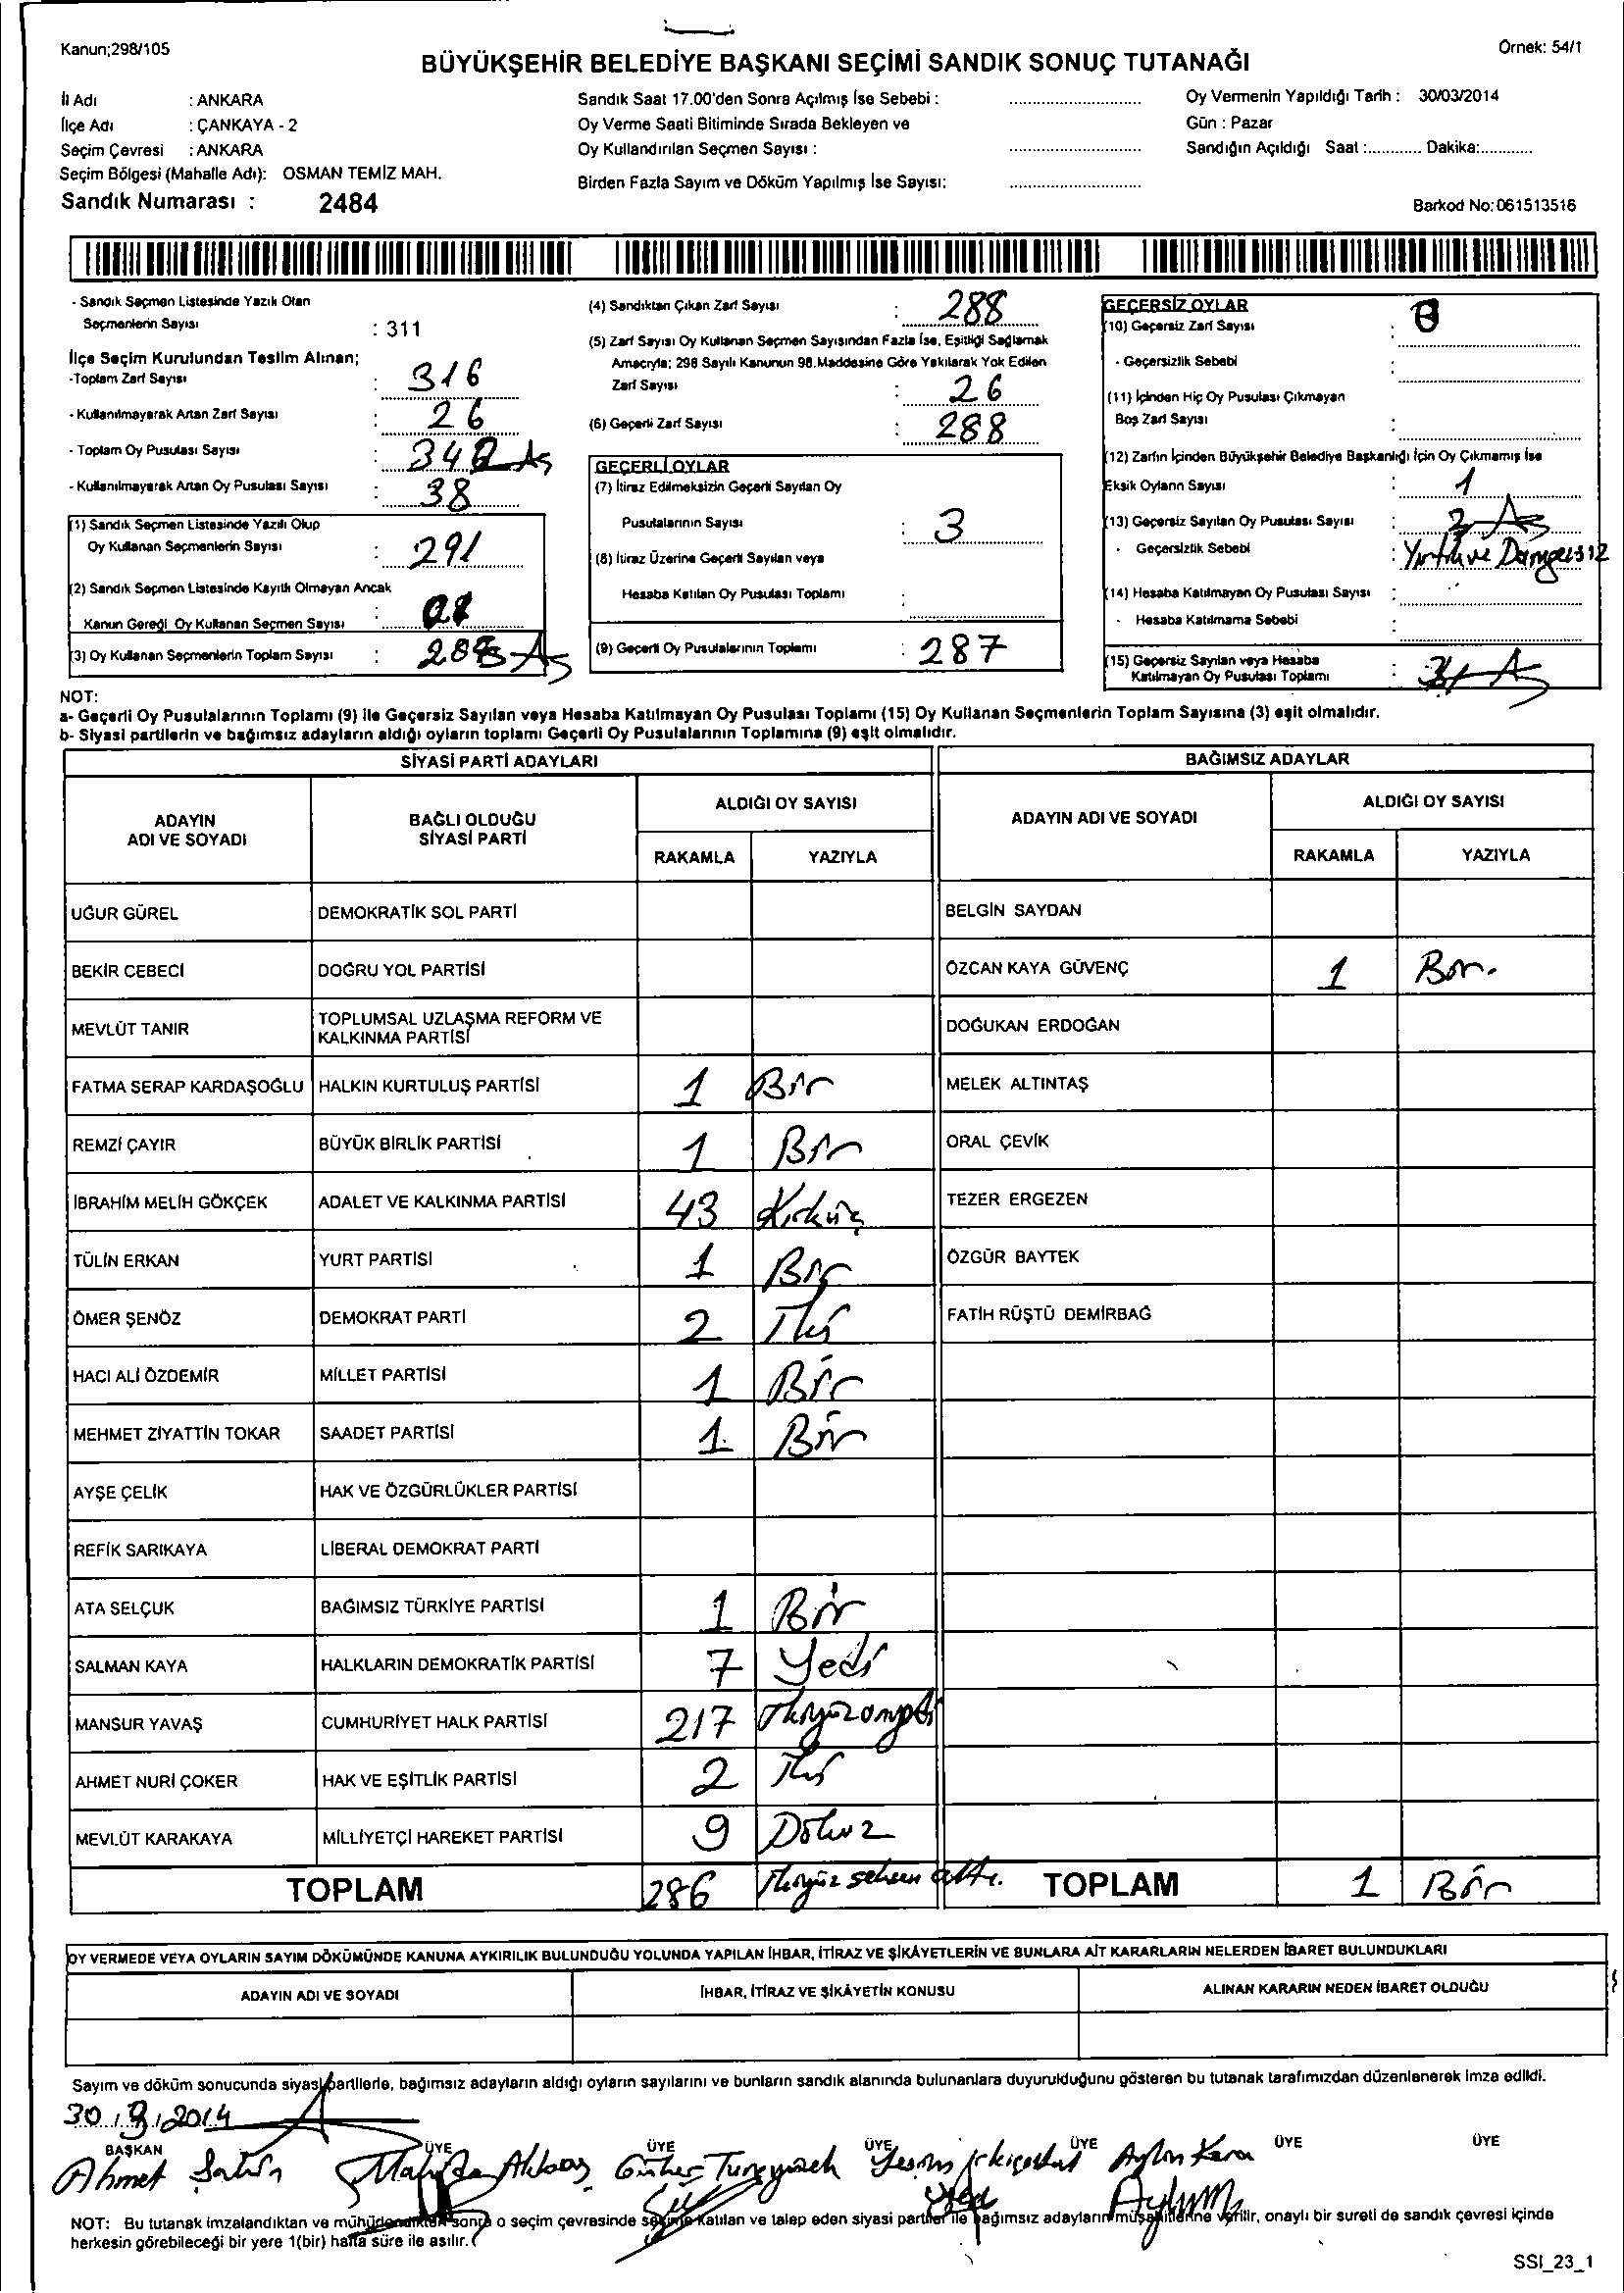 Kanun;298/105
Örnek: 54/1
BÜYÜKŞEHİR BELEDİYE BAŞKANI SEÇİMİ SANDIK SONUÇ TUTANAĞI
İl Adı : ANKARA
İlçe Adı : ÇANKAYA - 2
Seçim Çevresi : ANKARA
Seçim Bölgesi (Mahalle Adı): OSMAN TEMİZ MAH.
Sandık Numarası : 2484
Sandık Saat 17.00'den Sonra Açılmış İse Sebebi :
Oy Verme Saati Bitiminde Sırada Bekleyen ve
Oy Kullandırılan Seçmen Sayısı :
Birden Fazla Sayım ve Döküm Yapılmış İse Sayısı:
Oy Vermenin Yapıldığı Tarih : 30/03/2014
Gün : Pazar
Sandığın Açıldığı Saat :............ Dakika:............
Barkod No:061513516
- Sandık Seçmen Listesinde Yazılı Olan
Seçmenlerin Sayısı : 311
İlçe Seçim Kurulundan Teslim Alınan;
-Toplam Zarf Sayısı : 316
- Kullanılmayarak Artan Zarf Sayısı : 26
- Toplam Oy Pusulası Sayısı :
- Kullanılmayarak Artan Oy Pusulası Sayısı : 38
(1) Sandık Seçmen Listesinde Yazılı Olup
Oy Kullanan Seçmenlerin Sayısı : 291
(2) Sandık Seçmen Listesinde Kayıtlı Olmayan Ancak
Kanun Gereği Oy Kullanan Seçmen Sayısı :
(3) Oy Kullanan Seçmenlerin Toplam Sayısı :
(4) Sandıktan Çıkan Zarf Sayısı : 288
(5) Zarf Sayısı Oy Kullanan Seçmen Sayısından Fazla İse, Eşitliği Sağlamak
Amacıyla; 298 Sayılı Kanunun 98.Maddesine Göre Yakılarak Yok Edilen
Zarf Sayısı : 26
(6) Geçerli Zarf Sayısı : 288
GEÇERLİ OYLAR
(7) İtiraz Edilmeksizin Geçerli Sayılan Oy
Pusulalarının Sayısı : 3
(8) İtiraz Üzerine Geçerli Sayılan veya
Hesaba Katılan Oy Pusulası Toplamı :
(9) Geçerli Oy Pusulalarının Toplamı : 287
GEÇERSİZ OYLAR
(10) Geçersiz Zarf Sayısı :
- Geçersizlik Sebebi :
(11) İçinden Hiç Oy Pusulası Çıkmayan
Boş Zarf Sayısı :
(12) Zarfın İçinden Büyükşehir Belediye Başkanlığı İçin Oy Çıkmamış İse
Eksik Oyların Sayısı : 1
(13) Geçersiz Sayılan Oy Pusulası Sayısı :
- Geçersizlik Sebebi : Yırtık ve Damgasız
(14) Hesaba Katılmayan Oy Pusulası Sayısı :
- Hesaba Katılmama Sebebi :
(15) Geçersiz Sayılan veya Hesaba
Katılmayan Oy Pusulası Toplamı :
NOT:
a- Geçerli Oy Pusulalarının Toplamı (9) ile Geçersiz Sayılan veya Hesaba Katılmayan Oy Pusulası Toplamı (15) Oy Kullanan Seçmenlerin Toplam Sayısına (3) eşit olmalıdır.
b- Siyasi partilerin ve bağımsız adayların aldığı oyların toplamı Geçerli Oy Pusulalarının Toplamına (9) eşit olmalıdır.
SİYASİ PARTİ ADAYLARI
ADAYIN
ADI VE SOYADI
BAĞLI OLDUĞU
SİYASİ PARTİ
ALDIĞI OY SAYISI
RAKAMLA YAZIYLA
UĞUR GÜREL DEMOKRATİK SOL PARTİ
BEKİR CEBECİ DOĞRU YOL PARTİSİ
MEVLÜT TANIR TOPLUMSAL UZLAŞMA REFORM VE
KALKINMA PARTİSİ
FATMA SERAP KARDAŞOĞLU HALKIN KURTULUŞ PARTİSİ 1 Bir
REMZİ ÇAYIR BÜYÜK BİRLİK PARTİSİ 1 Bir
İBRAHİM MELİH GÖKÇEK ADALET VE KALKINMA PARTİSİ 43 Kırküç
TÜLİN ERKAN YURT PARTİSİ 1 Bir
ÖMER ŞENÖZ DEMOKRAT PARTİ 2 İki
HACI ALİ ÖZDEMİR MİLLET PARTİSİ 1 Bir
MEHMET ZİYATTİN TOKAR SAADET PARTİSİ 1 Bir
AYŞE ÇELİK HAK VE ÖZGÜRLÜKLER PARTİSİ
REFİK SARIKAYA LİBERAL DEMOKRAT PARTİ
ATA SELÇUK BAĞIMSIZ TÜRKİYE PARTİSİ 1 Bir
SALMAN KAYA HALKLARIN DEMOKRATİK PARTİSİ 7 Yedi
MANSUR YAVAŞ CUMHURİYET HALK PARTİSİ 217 İkiyüzonyedi
AHMET NURİ ÇOKER HAK VE EŞİTLİK PARTİSİ 2 İki
MEVLÜT KARAKAYA MİLLİYETÇİ HAREKET PARTİSİ 9 Dokuz
TOPLAM 286 İkiyüz seksen altı.
BAĞIMSIZ ADAYLAR
ADAYIN ADI VE SOYADI
ALDIĞI OY SAYISI
RAKAMLA YAZIYLA
BELGİN SAYDAN
ÖZCAN KAYA GÜVENÇ 1 Bir.
DOĞUKAN ERDOĞAN
MELEK ALTINTAŞ
ORAL ÇEVİK
TEZER ERGEZEN
ÖZGÜR BAYTEK
FATİH RÜŞTÜ DEMİRBAĞ
TOPLAM 1 Bir
OY VERMEDE VEYA OYLARIN SAYIM DÖKÜMÜNDE KANUNA AYKIRILIK BULUNDUĞU YOLUNDA YAPILAN İHBAR, İTİRAZ VE ŞİKÂYETLERİN VE BUNLARA AİT KARARLARIN NELERDEN İBARET BULUNDUKLARI
ADAYIN ADI VE SOYADI İHBAR, İTİRAZ VE ŞİKÂYETİN KONUSU ALINAN KARARIN NEDEN İBARET OLDUĞU
Sayım ve döküm sonucunda siyasi partilerle, bağımsız adayların aldığı oyların sayılarını ve bunların sandık alanında bulunanlara duyurulduğunu gösteren bu tutanak tarafımızdan düzenlenerek imza edildi.
30.3.2014
BAŞKAN ÜYE ÜYE ÜYE ÜYE ÜYE ÜYE
Ahmet Şahin Akbaş Aylin Kara
NOT: Bu tutanak imzalandıktan ve mühürlendikten sonra o seçim çevresinde seçime katılan ve talep eden siyasi partiler ile bağımsız adayların müşahitlerine verilir, onaylı bir sureti de sandık çevresi içinde
herkesin görebileceği bir yere 1(bir) hafta süre ile asılır.
SSI_23_1